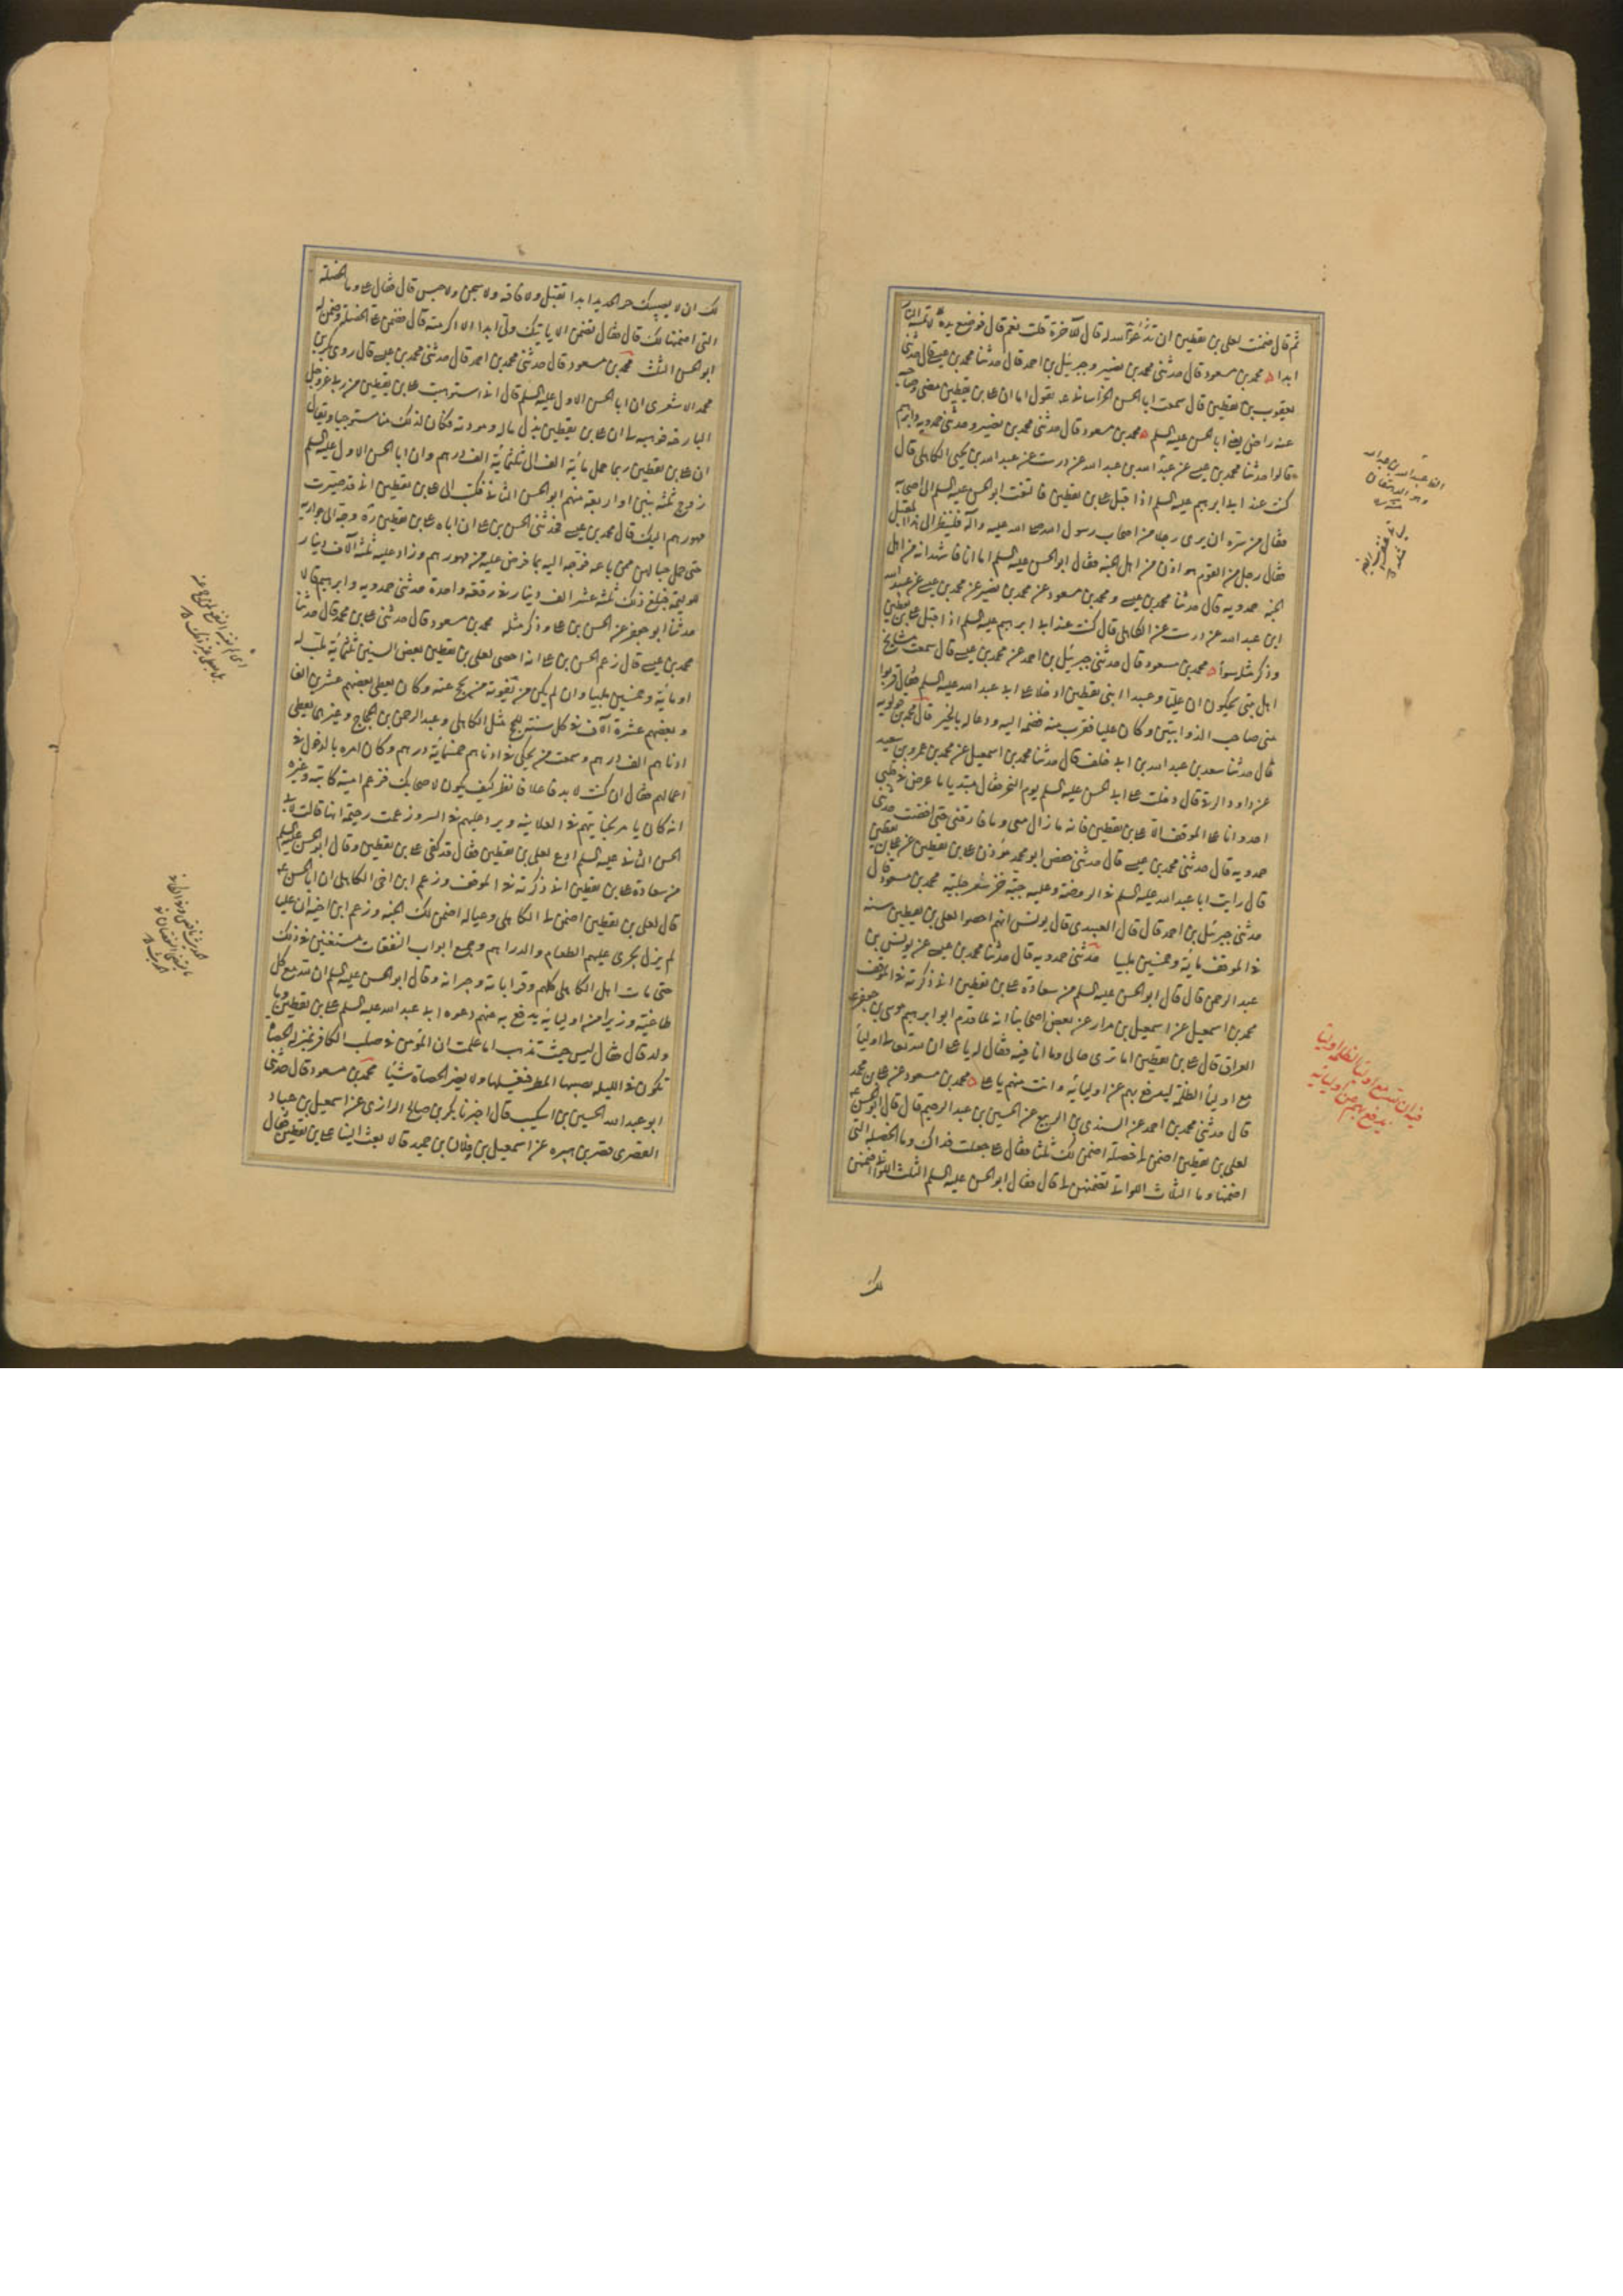 ثم قال ضمنت لعلي بن يقطين ان لا تمسه النار
ابدا محمد بن مسعود قال حدثني محمد بن نصير وجبرئيل بن احمد قال حدثنا محمد بن عيسى قال حدثني
يعقوب بن يقطين قال سمعت ابا الحسن الخراساني ع يقول اما ان على بن يقطين مضى وصاحبه
عنه راض يعني ابا الحسن عليه السلم محمد بن مسعود قال حدثني محمد بن نصير وحدثني حمدويه وابرهيم
قالوا حدثنا محمد بن عيسى عن عبيد الله بن عبد الله عن درست عن عبد الله بن يحيى الكاهلي قال
كنت عند ابى ابرهيم عليه السلم اذ اقبل على بن يقطين فالتفت ابو الحسن عليه السلم الى اصحابه
فقال من سره ان يرى رجلا من اصحاب رسول الله صلى الله عليه وآله فلينظر الى هذا المقبل
فقال رجل من القوم هو اذن من اهل الجنة فقال ابو الحسن عليه السلم اما انا فاشهد انه من اهل
الجنة حمدويه قال حدثنا محمد بن عيسى ومحمد بن مسعود عن محمد بن نصير عن محمد بن عيسى عن عبيد الله
ابن عبد الله عن درست عن الكاهلي قال كنت عند ابى ابرهيم عليه السلم اذ اقبل على بن يقطين
وذكر مثله سواء محمد بن مسعود قال حدثني جبرئيل بن احمد عن محمد بن عيسى قال سمعت مشايخ
اهل بيتي يحكون ان عليا وعبيدا ابني يقطين ادخلا على ابى عبد الله عليه السلم فقال قربوا
مني صاحب الذوابتين وكان عليا فقرب منه فضمه اليه ودعا له بالخير قال محمد بن قولويه
قال حدثنا سعد بن عبد الله بن ابى خلف قال حدثنا محمد بن اسمعيل عن محمد بن عمرو بن سعيد
عن داود الرقي قال دخلت على ابى الحسن عليه السلم يوم النحر فقال مبتديا ما عرض في قلبي
احد وانا على الموقف الا على بن يقطين فانه ما زال معي وما فارقني حتى افضت حدثني
حمدويه قال حدثني محمد بن عيسى قال حدثني حفص ابو محمد مؤذن على بن يقطين عن على بن يقطين
قال رايت ابا عبد الله عليه السلم في الروضة وعليه جبة خز سفرجلية محمد بن مسعود قال
حدثني جبرئيل بن احمد قال قال العبيدي قال يونس انهم احصوا لعلي بن يقطين سنة
في الموقف ماية وخمسين ملبيا حدثني حمدويه قال حدثنا محمد بن عيسى عن يونس بن
عبد الرحمن قال قال ابو الحسن عليه السلم من سعادة على بن يقطين انى ذكرته في الموقف
محمد بن اسمعيل عن اسمعيل بن مرار عن بعض اصحابنا انه لما قدم ابو ابرهيم موسى بن جعفر ع
العراق قال على بن يقطين اما ترى حالي وما انا فيه فقال له يا على ان لله تعالى اوليا
مع اوليا الظلمة ليدفع بهم عن اوليائه وانت منهم يا على محمد بن مسعود عن على بن محمد
قال حدثني محمد بن احمد عن السندي بن الربيع عن الحسين بن عبد الرحيم قال قال ابو الحسن ع
لعلي بن يقطين اضمن لى خصلة اضمن لك ثلثا فقال على جعلت فداك وما الخصلة التي
اضمنها وما الثلاث اللواتي تضمنهن لى قال فقال ابو الحسن عليه السلم الثلث اللواتي اضمنهن
لك
فيه ان لله مع اوليا الظلمة اوليا
يدفع بهم عن اوليائه
لك ان لا يصيبك حر الحديد ابدا بقتل ولا فاقة ولا سجن حبس قال فقال على وما الخصلة
التي اضمنها لك قال فقال تضمن الا ياتيك ولى ابدا الا اكرمته قال فضمن على الخصلة وضمن له
ابو الحسن الثلث محمد بن مسعود قال حدثني محمد بن احمد قال حدثني محمد بن عيسى قال روى بكر بن
محمد الاشعري ان ابا الحسن الاول عليه السلم قال انى استوهبت على بن يقطين من ربى عز وجل
البارحة فوهبه لى ان على بن يقطين بذل ماله ومودته فكان لذلك منا مستوجبا ويقال
ان على بن يقطين ربما حمل ماية الف الى ثلثماية الف درهم وان ابا الحسن الاول عليه السلم
زوج ثلثة بنين او اربعة منهم ابو الحسن الثاني فكتب الى على بن يقطين انى قد صيرت
مهورهم اليك قال محمد بن عيسى فحدثني الحسن بن على ان اباه على بن يقطين ره وجه الى جواريه
حتى حمل حبالهن ممن باعه فوجه اليه بما فرض عليه من مهورهم وزاد عليه ثلثة آلاف دينار
للوليمة فبلغ ذلك ثلثة عشر الف دينار في دفعة واحدة حدثني حمدويه وابرهيم قالا
حدثنا ابو جعفر عن الحسن بن على وذكر مثله محمد بن مسعود قال حدثني على بن محمد قال حدثنا
محمد بن عيسى قال زعم الحسن بن على انه احصى لعلي بن يقطين بعض السنين ثلثماية ملب له
او ماية وخمسين ملبيا وان لم يكن من يفوته من يحج عنه وكان يعطى بعضهم عشرين الف
وبعضهم عشرة آلاف في كل سنة للحج مثل الكاهلي وعبد الرحمن بن الحجاج وغيرهما يعطى
ادناهم الف درهم وسمعت من يحكى في ادناهم خمسماية درهم وكان امره بالدخول في
اعمالهم فقال ان كنت لا بد فاعلا فانظر كيف يكون لاصحابك فزعم امية كاتبه وغيره
انه كان يامر بجبايتهم في العلانية ويرد عليهم في السر وزعمت رحيمة انها قالت لابى
الحسن الثاني عليه السلم ادع لعلي بن يقطين فقال قد كفى على بن يقطين وقال ابو الحسن عليه السلم
من سعادة على بن يقطين انى ذكرته في الموقف وزعم ابن اخي الكاهلي ان ابا الحسن ع
قال لعلي بن يقطين اضمن لى الكاهلي وعياله اضمن لك الجنة وزعم ابن اخيه ان عليا
لم يزل يجرى عليهم الطعام والدراهم وجميع ابواب النفقات مستغنين في ذلك
حتى مات اهل الكاهلي كلهم وقراباته وجيرانه وقال ابو الحسن عليه السلم ان لله مع كل
طاغية وزيرا من اوليائه يدفع به عنهم دعوة ابى عبد الله عليه السلم على بن يقطين وما
ولد قال فقال ليس حيث تذهب اما علمت ان المؤمن في صلب الكافر بمنزلة الحصاة
تكون في اللبنة يصيبها المطر فيغسلها ولا يضر الحصاة شيئا محمد بن مسعود قال حدثني
ابو عبد الله الحسين بن اشكيب قال اخبرنا بكر بن صالح الرازي عن اسمعيل بن عباد
القصري قصر بن هبيرة عن اسمعيل بن سلام وفلان بن حميد قالا بعث الينا على بن يقطين فقال